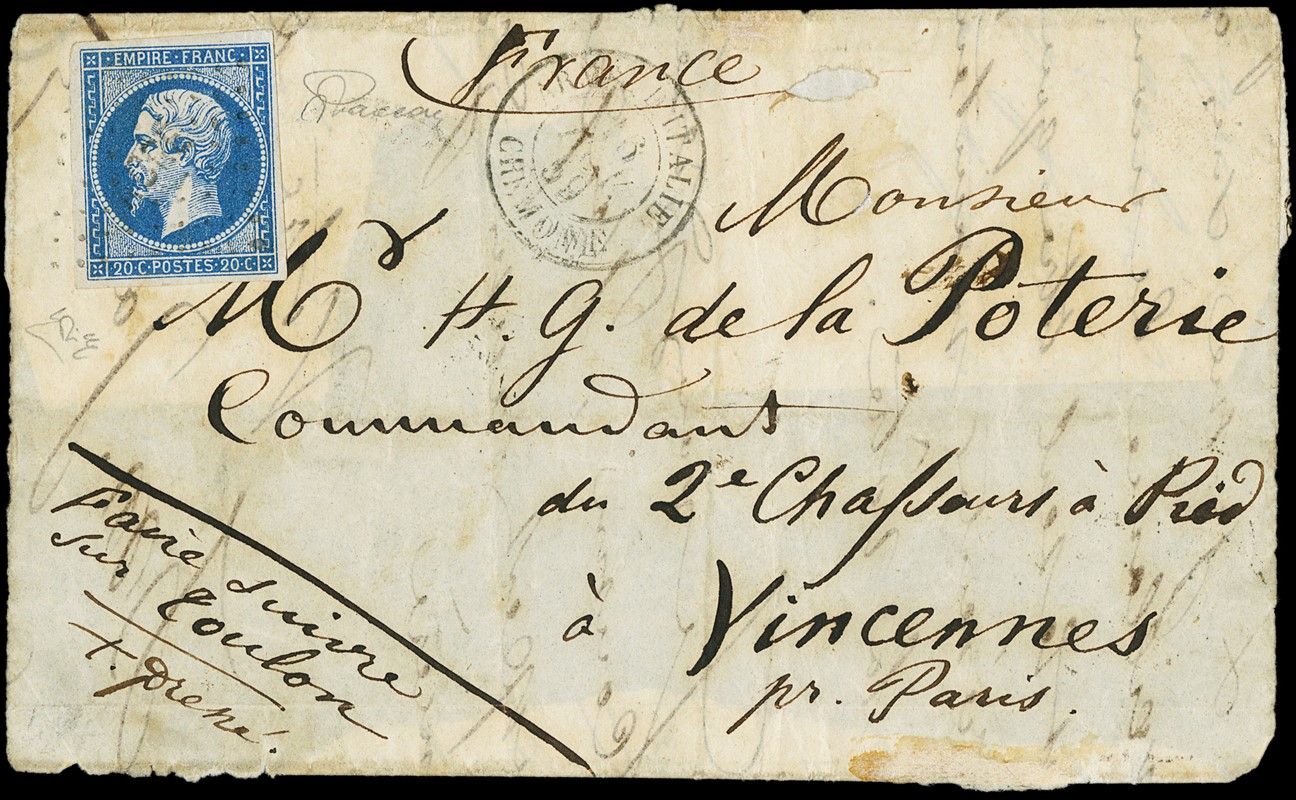 EMPIRE FRANC
20·C·POSTES·20·C
France
ITALIE
CREMONE
59
Monsieur
Mr H. G. de la Poterie
Commandant
du 2e Chasseurs à Pied
à Vincennes
pr. Paris.
Faire suivre
sur Toulon